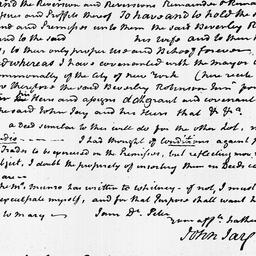 and the Reversion and Reversions Remainder & Rem
and Profits thereof To have and to hold the s
and Premises unto them the said Beverley R
and to the said his wife and to their h
to their only proper use and Behoof forever
whereas I have covenanted with the Mayor
ommonalty of the City of New York (here recite
therefore the said Beverley Robinson Junr for
Heirs and assigns doth grant and covenant
the said John Jay and his Heirs that &c &ca.
a deed similar to this will do for the other lot,
I had thought of Conditions against
Trades to be exercised on the Premises, but reflecting now
bject, I doubt the propriety of inserting them in Deeds
are
Mr. Munro has written to Whitney - if not, I must
exculpate myself, and for that Purpose shall want h
to mary I am Dr Peter
your afft. Father
John Jay